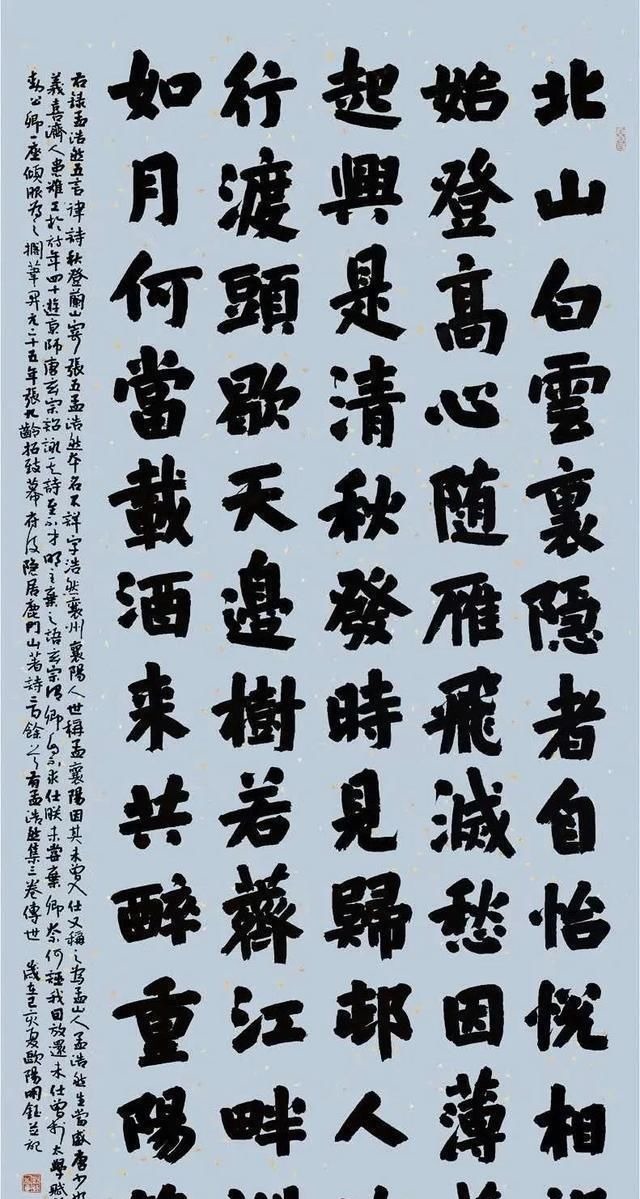 北山白雲裏隐者自怡悅相
始登高心随雁飛滅愁因薄
起興是清秋發時見歸邨人
行渡頭歇天邊樹若薺江畔
如月何當載酒来共醉重陽
右録孟浩然五言律詩秋登蘭山寄張五孟浩然本名不詳字浩然襄州襄陽人世稱孟襄陽因其未曾入仕又稱之為孟山人孟浩然生當盛唐少好
義喜濟人患難工於詩年四十遊京師唐玄宗詔詠其詩至不才明主棄之語玄宗謂卿不求仕朕未嘗棄卿奈何誣我因放還未仕曾於太學賦
動公卿一座傾服為之擱筆開元二十五年張九齡招致幕府後隐居鹿門山著詩二百餘有孟浩然集三卷傳世 歲在己亥夏歐陽明鈺並記